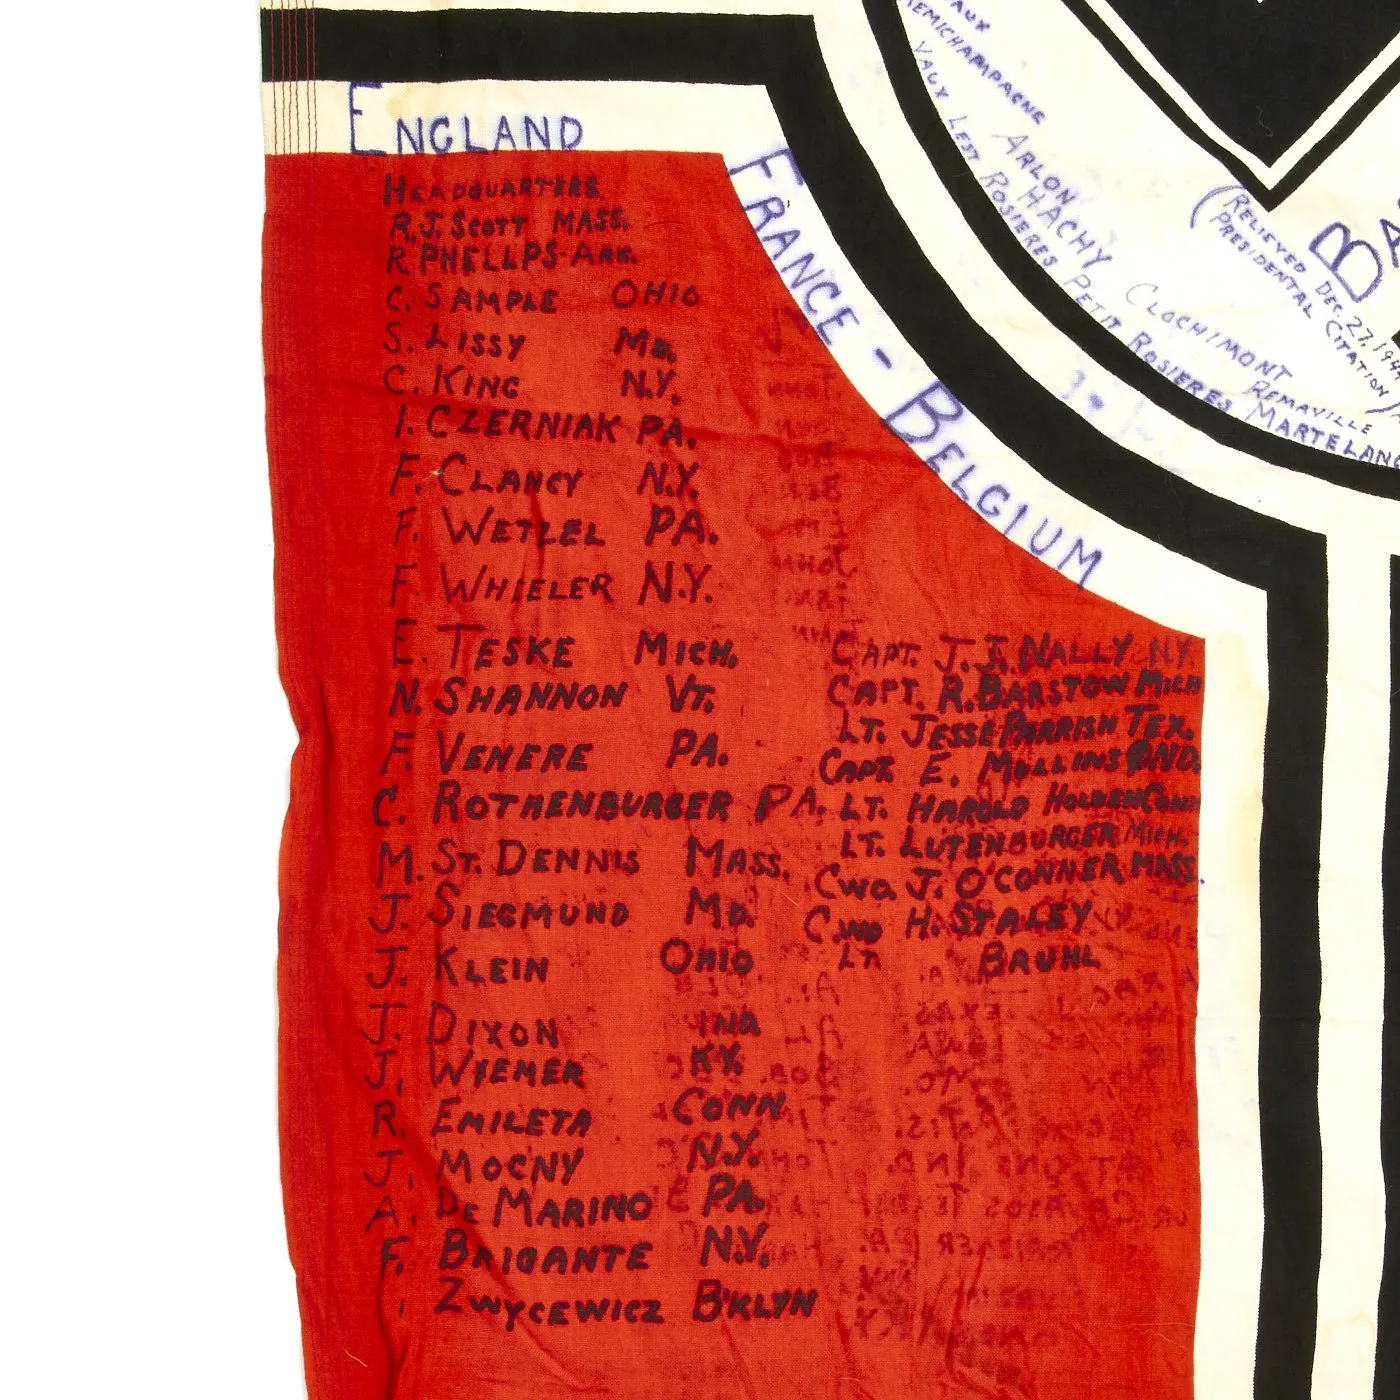 ENGLAND
FRANCE - BELGIUM
HEADQUARTERS
R.J. SCOTT MASS.
R. PHELLPS ARK.
C. SAMPLE OHIO
S. LISSY MD.
C. KING N.Y.
I. CZERNIAK PA.
F. CLANCY N.Y.
F. WETZEL PA.
F. WHEELER N.Y.
E. TESKE MICH.
N. SHANNON VT.
F. VENERE PA.
C. ROTHENBURGER PA.
M. ST. DENNIS MASS.
J. SIEGMUND MD.
J. KLEIN OHIO
J. DIXON IND.
J. WIEMER KY.
R. EMILETA CONN.
J. MOCNY N.Y.
A. DE MARINO PA.
F. BRIGANTE N.Y.
ZWYCEWICZ B'KLYN
CAPT. J.J. NALLY N.Y.
CAPT. R. BARSTOW MICH
LT. JESSE PARRISH TEX.
CAPT. E. MULLINS IND.
LT. HAROLD HOLDEN CONN
LT. LUTENBURGER MICH.
CWO. J. O'CONNER MASS.
C.WO H. STALEY
LT. BRUHL
REMICHAMPAGNE
VAUX LEST ROSIERES PETIT ROSIERES MARTELANG
ARLON
HACHY
CLOCHIMONT
REMAVILLE
(RELIEVED DEC. 27, 1944
PRESIDENTAL CITATION)
BA